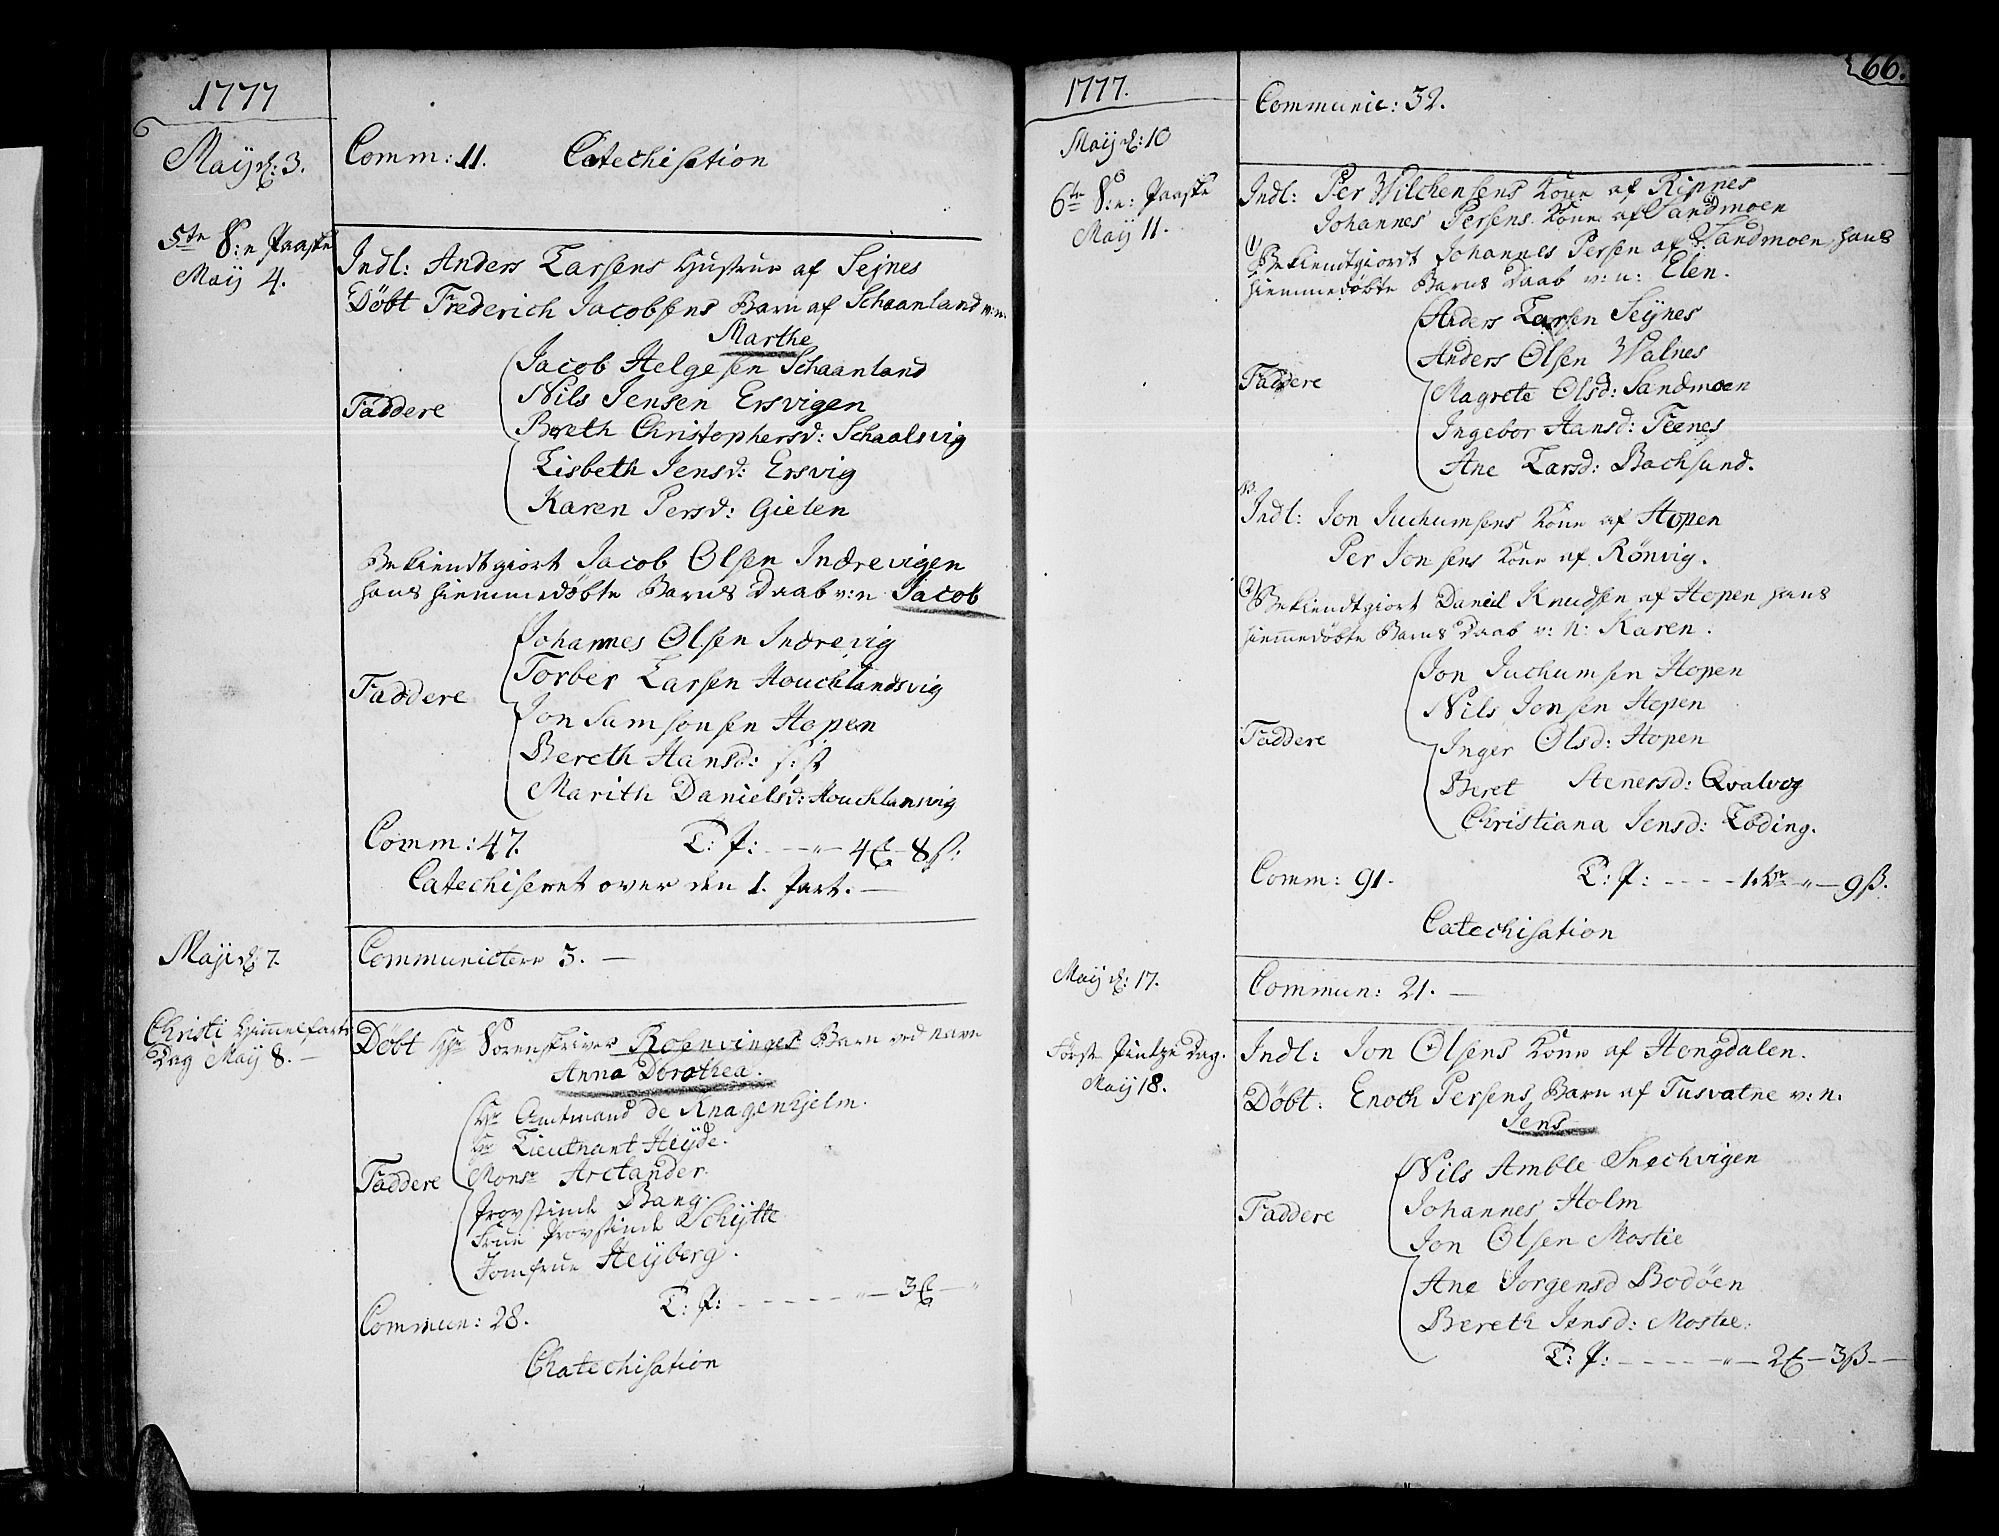 1777
Maij d: 3.
Comm: 11. Catechisation
5te S: e Paaske
Maij 4.
Indl: Anders Larsens Hustrue af Sejnes
Döbt Frederich Jacobsens Barn af Schaanland v: n:
Marthe
Jacob Helgesen Schaanland
Nils Jensen Ersvigen
Faddere
Bereth Christophersd: Schaalsvig
Lisbeth Jensd: Ersvig
Karen Persd: Gielen
Bekiendtgiort Jacob Olsen Indrevigen
hans hiemmedöbte Barns Daab v: n Jacob
Johannes Olsen Indrevig
Torber Larsen Houcklandsvig
Faddere
Jon Samsonsen Hopen
Bereth Hansd:
Marith Danielsd: Houcklansvig
Comm: 47. T: P: - - - " - 4 8 ß:
Catechiseret over den 1. Part. -
Maji d: 7.
Communictere 3. -
Christi Himmelfarts
Dag Maij 8. -
Döbt Hr Sorenskriver Rosenvinges Barn ved navn
Anna Dorothea.
Hr Amtmand de Knagenhjelm.
Hr Lieutnant Heyde.
Faddere
Monsr Arctander
Provstinde Bang.
Frue Provstinde Schytte
Jomfrue Heyberg.
T: P: - - - - - " - 3
Commun: 28.
Chatechisation
66.
1777.
Communic: 32.
Maij d: 10
6te S: e: Paaske
Maij 11.
Indl: Per Wilchensens Kone af Ripnes
Johannes Persens Kone af Sandmoen
1) Bekiendtgiort Johannes Persen af Sandmoen, hans
hiemmedöbte Barns Daab v: n: Elen.
Anders Larsen Seijnes
Anders Olsen Walnes
Faddere
Magrete Olsd: Sandmoen
Ingebor Hansd: Feenes
Ane Larsd: Bachsund.
Indl: Jon Juchumsens Kone af Hopen
Per Jonsens Kone af Rönvig.
2) Bekiendtgiort Daniel Knudsen af Hopen hans
hiemmedöbte Barns Daab v: n: Karen.
Jon Juchumsen Hopen
Nils Jonsen Hopen
Faddere
Inger Olsd: Hopen
Beret Stenersd: Qvalvog
Christiana Jensd: Löding.
Comm: 91. T: P: - - - - 1 " - 9 ß.
Catechisation
Maij d: 17.
Commun: 21. -
Först Pintze Dag.
Maij 18.
Indl: Jon Olsens Kone af Hongdalen.
Döbt. Enoch Persens Barn af Tusvatne v: n.
Jens
Nils Amble Snechvigen
Johannes Holm
Faddere
Jon Olsen Mostie
Ane Jorgensd Bodöen
Bereth Jensd: Mostie.
T: P: - - - - - " - 2 - 3 ß -